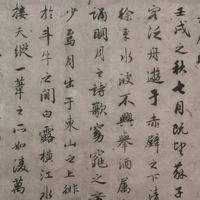 壬戌之秋七月既望蘇子
客泛舟遊于赤壁之下清
徐來水波不興舉酒屬
誦明月之詩歌窈窕之
少焉月出于東山之上徘
於斗牛之間白露橫江水
接天縱一葦之所如凌萬